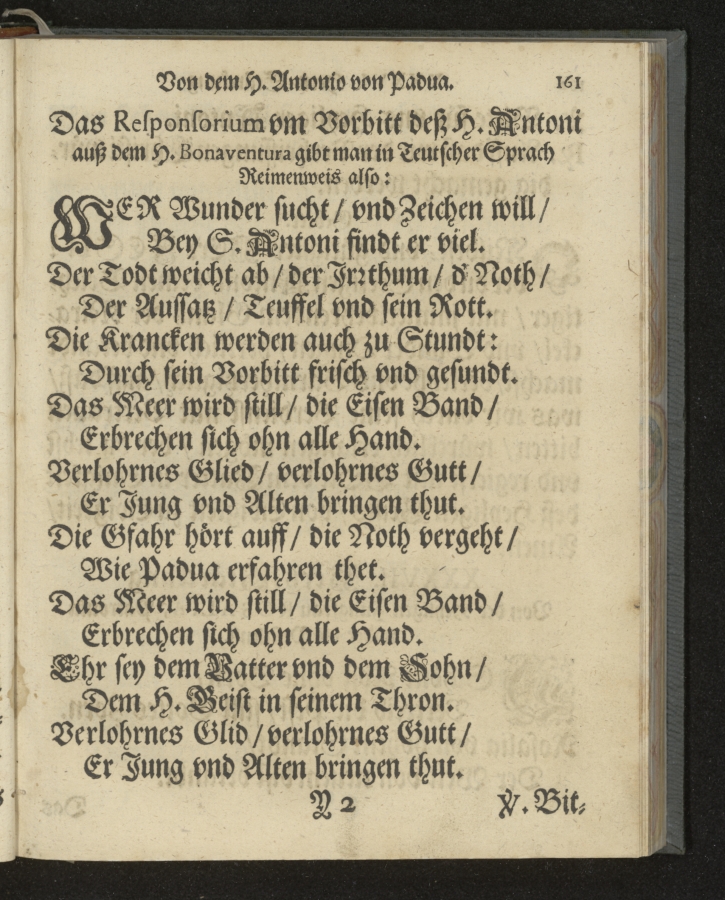 Von dem H. Antonio von Padua. 161
Das Responsorium vm Vorbitt deß H. Antoni
auß dem H. Bonaventura gibt man in Teutscher Sprach
Reimenweis also:
WER Wunder sucht / vnd Zeichen will /
Bey S. Antoni findt er viel.
Der Todt weicht ab / der Irrthum / d' Noth /
Der Aussatz / Teuffel vnd sein Rott.
Die Krancken werden auch zu Stundt:
Durch sein Vorbitt frisch vnd gesundt.
Das Meer wird still / die Eisen Band /
Erbrechen sich ohn alle Hand.
Verlohrnes Glied / verlohrnes Gutt /
Er Jung vnd Alten bringen thut.
Die Gfahr hört auff / die Noth vergeht /
Wie Padua erfahren thet.
Das Meer wird still / die Eisen Band /
Erbrechen sich ohn alle Hand.
Ehr sey dem Vatter vnd dem Sohn /
Dem H. Geist in seinem Thron.
Verlohrnes Glid / verlohrnes Gutt /
Er Jung vnd Alten bringen thut.
N 2 ℣. Bit⸗